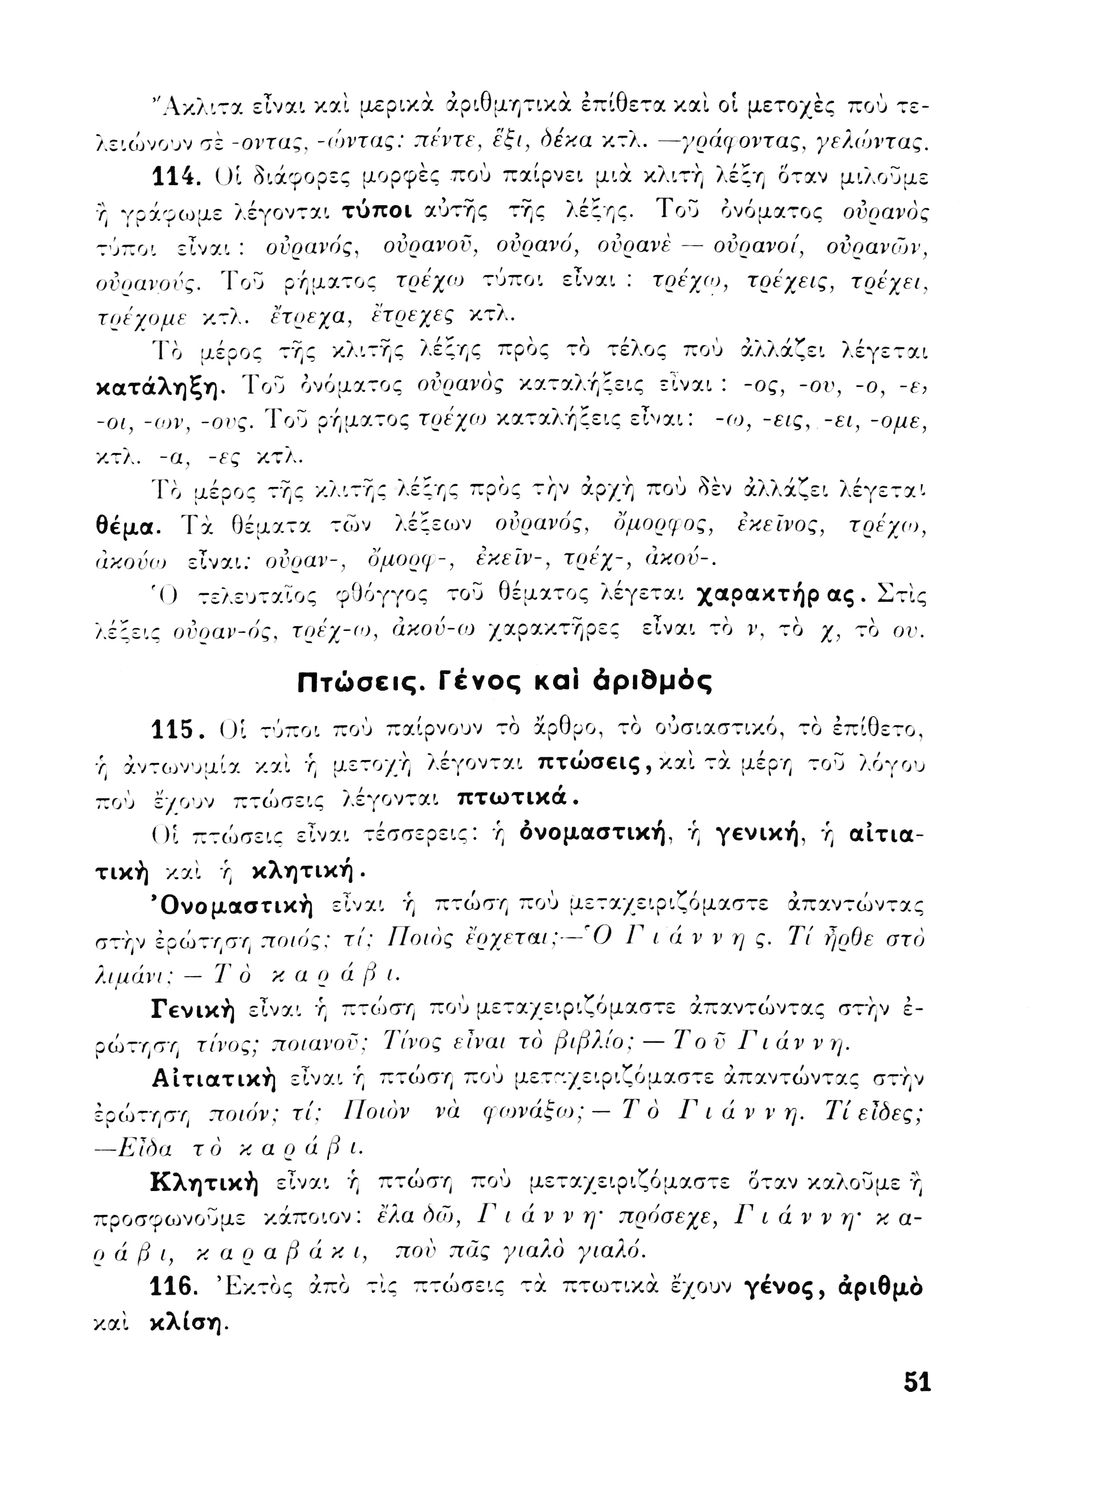 Ἄκλιτα εἶναι καὶ μερικὰ ἀριθμητικὰ ἐπίθετα καὶ οἱ μετοχὲς ποὺ τε-
λειώνουν σὲ -οντας, -ώντας: πέντε, ἕξι, δέκα κτλ. —γράφοντας, γελώντας.
114. Οἱ διάφορες μορφὲς ποὺ παίρνει μιὰ κλιτὴ λέξη ὅταν μιλοῦμε
ἢ γράφωμε λέγονται τύποι αὐτῆς τῆς λέξης. Τοῦ ὀνόματος οὐρανὸς
τύποι εἶναι : οὐρανός, οὐρανοῦ, οὐρανό, οὐρανὲ — οὐρανοί, οὐρανῶν,
οὐρανούς. Τοῦ ρήματος τρέχω τύποι εἶναι : τρέχω, τρέχεις, τρέχει,
τρέχομε κτλ. ἔτρεχα, ἔτρεχες κτλ.
Τὸ μέρος τῆς κλιτῆς λέξης πρὸς τὸ τέλος ποὺ ἀλλάζει λέγεται
κατάληξη. Τοῦ ὀνόματος οὐρανὸς καταλήξεις εἶναι : -ος, -ου, -ο, -ε,
-οι, -ων, -ους. Τοῦ ρήματος τρέχω καταλήξεις εἶναι: -ω, -εις, -ει, -ομε,
κτλ. -α, -ες κτλ.
Τὸ μέρος τῆς κλιτῆς λέξης πρὸς τὴν ἀρχὴ ποὺ δὲν ἀλλάζει λέγεται
θέμα. Τὰ θέματα τῶν λέξεων οὐρανός, ὄμορφος, ἐκεῖνος, τρέχω,
ἀκούω εἶναι: οὐραν-, ὄμορφ-, ἐκεῖν-, τρέχ-, ἀκού-.
Ὁ τελευταῖος φθόγγος τοῦ θέματος λέγεται χαρακτήρας. Στὶς
λέξεις οὐραν-ός, τρέχ-ω, ἀκού-ω χαρακτῆρες εἶναι τὸ ν, τὸ χ, τὸ ου.
Πτώσεις. Γένος καὶ ἀριθμὸς
115. Οἱ τύποι ποὺ παίρνουν τὸ ἄρθρο, τὸ οὐσιαστικό, τὸ ἐπίθετο,
ἡ ἀντωνυμία καὶ ἡ μετοχὴ λέγονται πτώσεις, καὶ τὰ μέρη τοῦ λόγου
ποὺ ἔχουν πτώσεις λέγονται πτωτικά.
Οἱ πτώσεις εἶναι τέσσερεις: ἡ ὀνομαστική, ἡ γενική, ἡ αἰτια-
τικὴ καὶ ἡ κλητική.
Ὀνομαστικὴ εἶναι ἡ πτώση ποὺ μεταχειριζόμαστε ἀπαντώντας
στὴν ἐρώτηση ποιός; τί; Ποιὸς ἔρχεται;—Ὁ Γιάννης. Τί ἦρθε στὸ
λιμάνι; — Τὸ καράβι.
Γενικὴ εἶναι ἡ πτώση ποὺ μεταχειριζόμαστε ἀπαντώντας στὴν ἐ-
ρώτηση τίνος; ποιανοῦ; Τίνος εἶναι τὸ βιβλίο; — Τοῦ Γιάννη.
Αἰτιατικὴ εἶναι ἡ πτώση ποὺ μεταχειριζόμαστε ἀπαντώντας στὴν
ἐρώτηση ποιόν; τί; Ποιὸν νὰ φωνάξω; — Τὸ Γιάννη. Τί εἶδες;
—Εἶδα τὸ καράβι.
Κλητικὴ εἶναι ἡ πτώση ποὺ μεταχειριζόμαστε ὅταν καλοῦμε ἢ
προσφωνοῦμε κάποιον: ἔλα δῶ, Γιάννη· πρόσεχε, Γιάννη· κα-
ράβι, καραβάκι, ποὺ πᾶς γιαλὸ γιαλό.
116. Ἐκτὸς ἀπὸ τὶς πτώσεις τὰ πτωτικὰ ἔχουν γένος, ἀριθμὸ
καὶ κλίση.
51